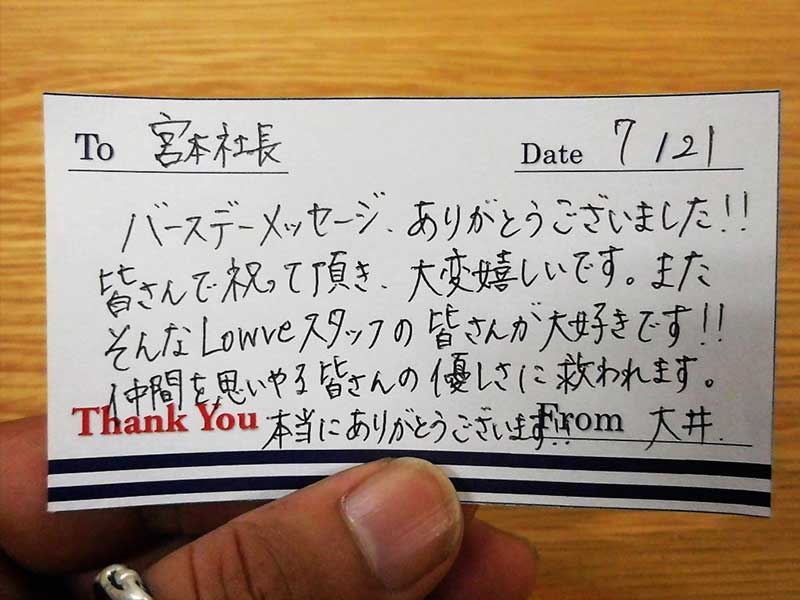 To 宮本社長 Date 7/21
バースデーメッセージ、ありがとうございました!!
皆さんで祝って頂き、大変嬉しいです。また
そんなLowveスタッフの皆さんが大好きです!!
仲間を思いやる皆さんの優しさに救われます。
Thank You 本当にありがとうございます!! From 大井